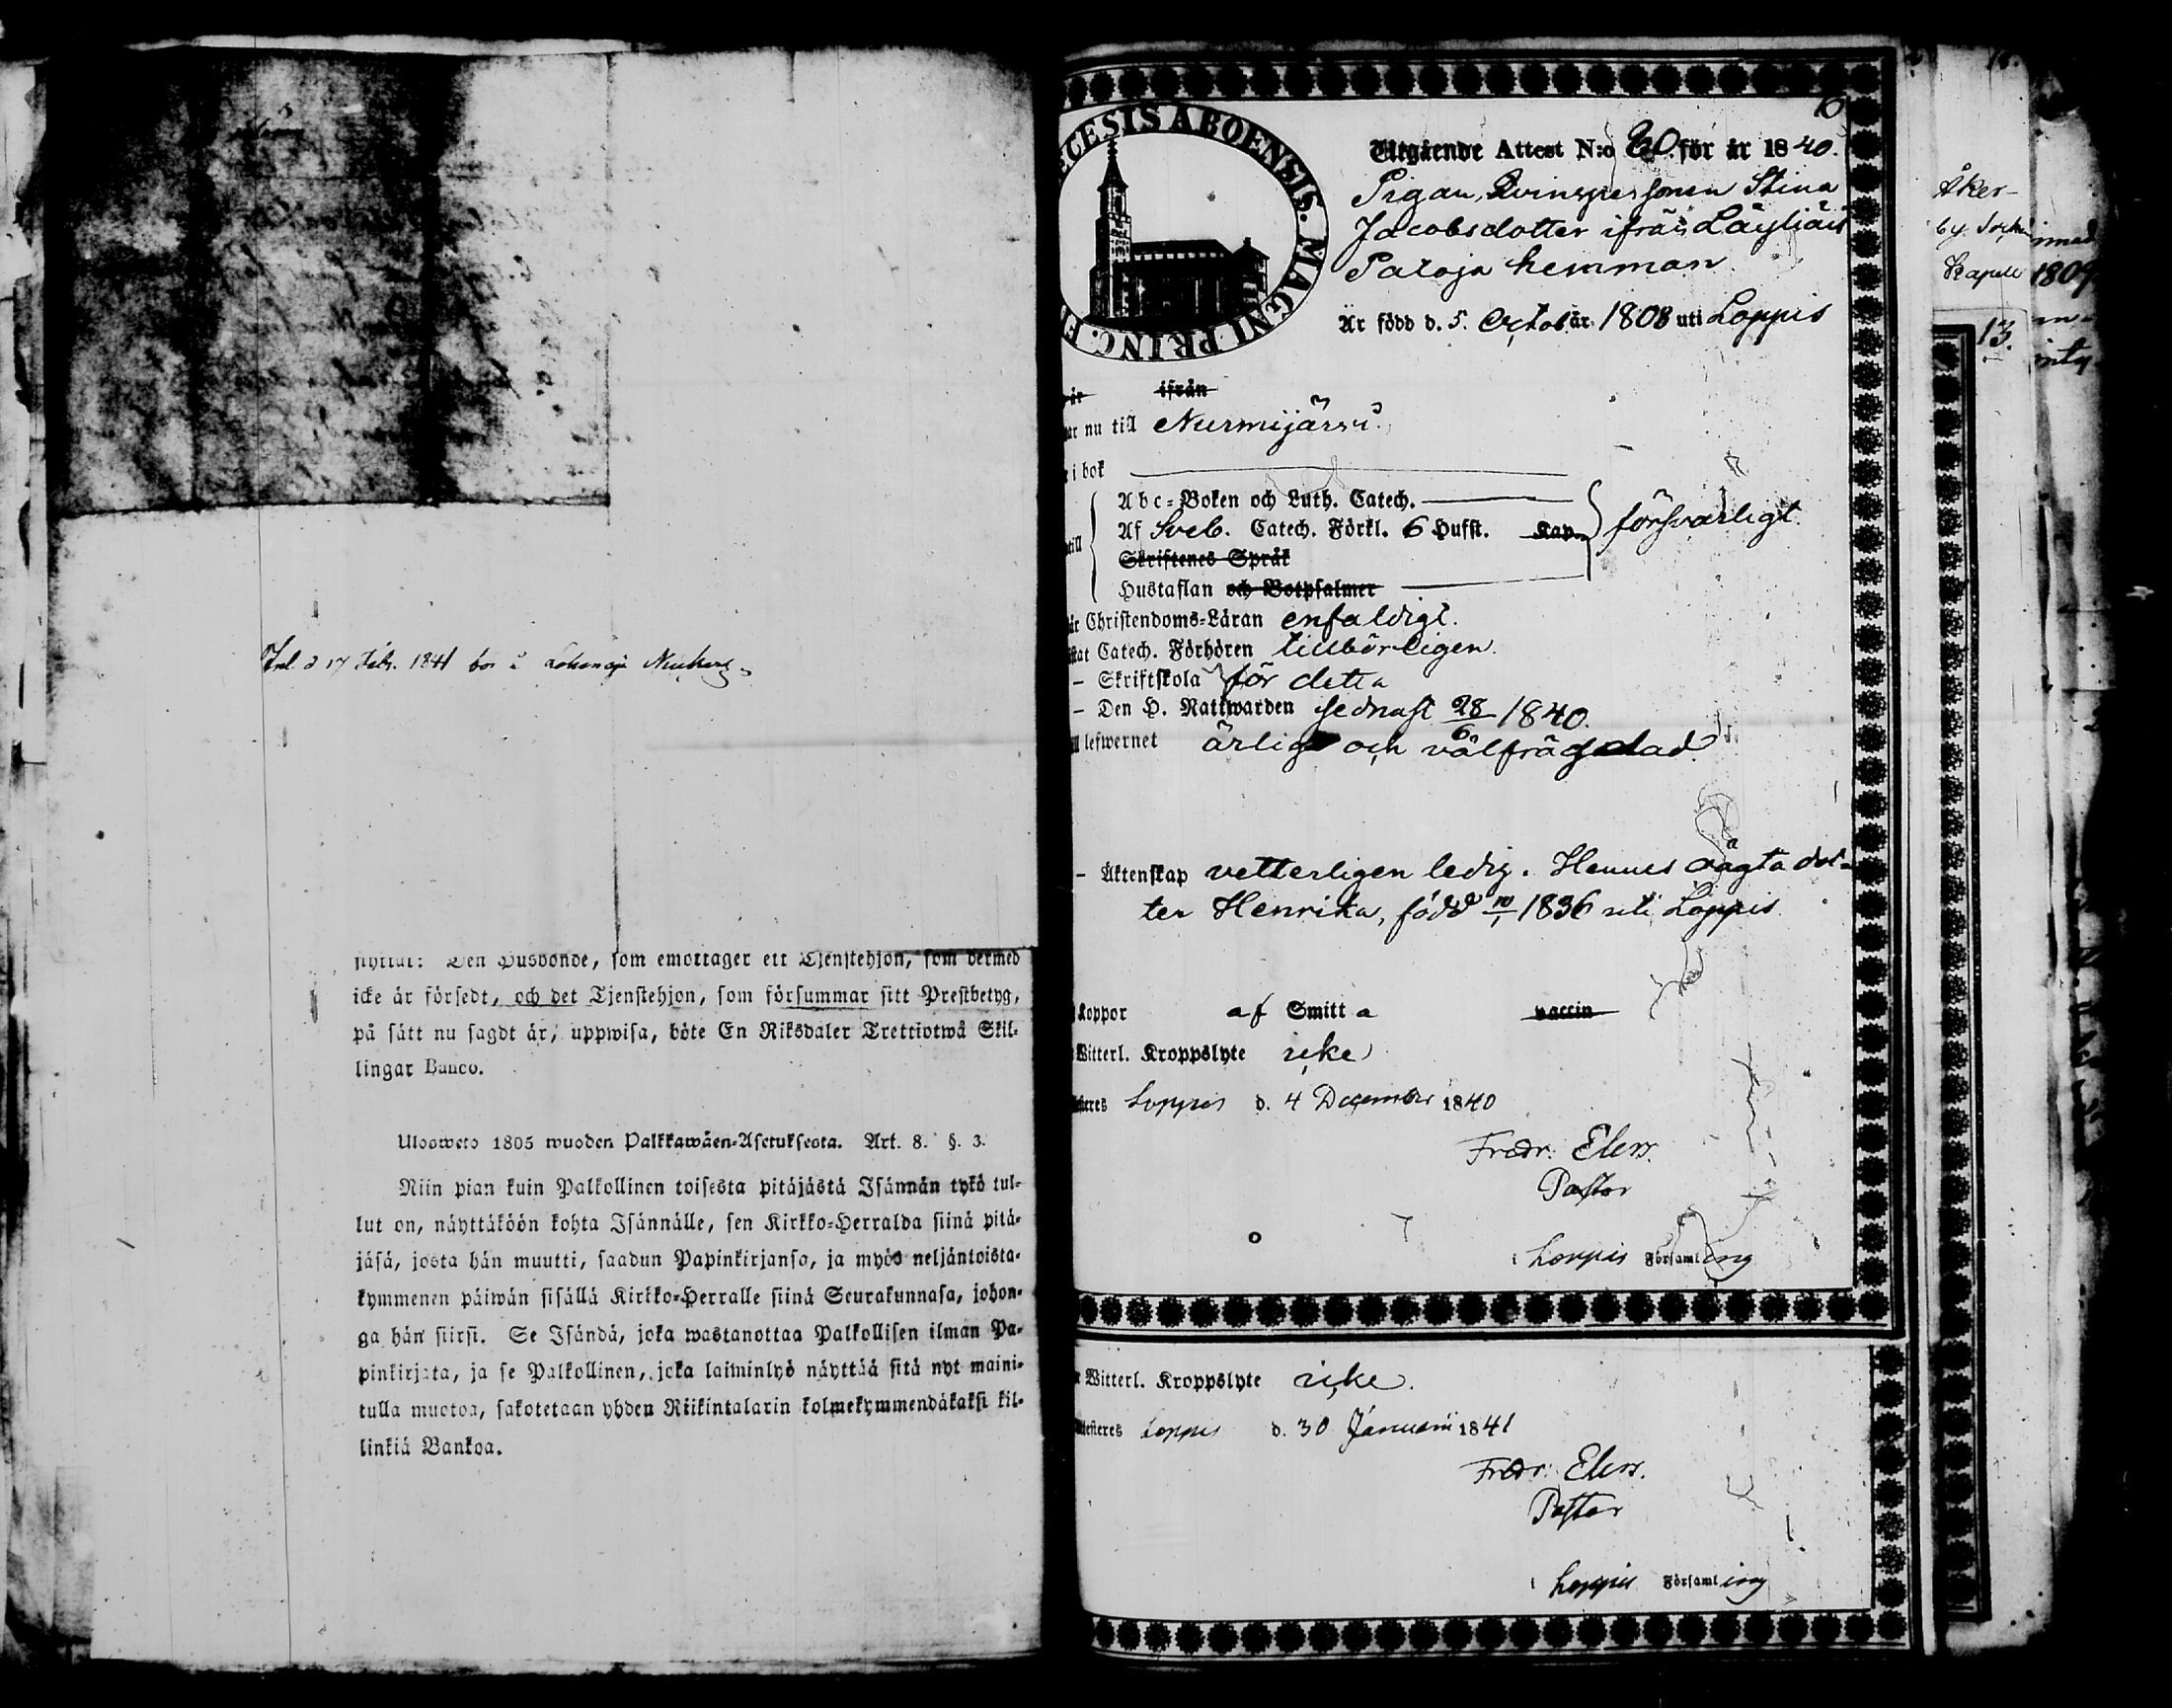 Inl. d 17 Febr. 1841 bor i
flyttat: Den Husbonde, som emottager ett Tjenstehjon, som dermed
icke är försedt, och det Tjenstehjon, som försummar sitt Prestbetyg,
på sätt nu sagdt är, uppwisa, böte En Riksdaler Trettiotwå Skil-
lingar Banco.
Ulosweto 1805 wuoden Palkkawäen-Asetuksesta. Art. 8. §. 3.
Niin pian kuin Palkollinen toisesta pitäjästä Isännän tykö tul-
lut on, näyttäköön kohta Isännälle, sen Kirkko-Herralda siinä pitä-
jäsä, josta hän muutti, saadun Papinkirjansa, ja myös neljäntoista-
kymmenen päiwän sisällä Kirkko-Herralle siinä Seurakunnasa, johon-
ga hän siirsi. Se Isändä, joka wastanottaa Palkollisen ilman Pa-
pinkirjata, ja se Palkollinen, joka laiminlyö näyttää sitä nyt maini-
tulla muotoa, sakotetaan yhden Riikintalarin kolmekymmendäkaksi kil-
linkiä Bankoa.
CESIS ABOENSIS. MAGNI PRINC. F
Utgående Attest N:o 20 för år 1840.
Pigan, Qvinspersonen Stina
Jacobsdotter ifrån Läyliäis
Patoja hemman
Är född d. 5. Octob. år 1808 uti Loppis
år ifrån
nu till Nurmijärvi.
i bok
Abc-Boken och Luth. Catech.
Af Sveb. Catech. Förkl. 6 Hufst. Kap. försvarligt.
Skriftenes Språk
Hustaflan och Botpsalmer
Christendoms-Läran enfaldigt.
Catech. Förhören tillbörligen.
– Skriftskola för detta
– Den H. Nattwarden sednast 28/6 1840.
lefwernet ärlig och välfrägdad
– Äktenskap vetterligen ledig. Hennes oägta dot-
ter Henrika, född 10/1 1836 uti Loppis
Koppor af Smitta vaccin
Witterl. Kroppslyte icke
Loppis d. 4 December 1840
Fredr. Elers.
Pastor
i Loppis Församling
Witterl. Kroppslyte icke.
Loppis d. 30 Januarii 1841
Fredr. Elers.
Pastor
i Loppis Församling
Åker-
by
Kapell
1809
13.